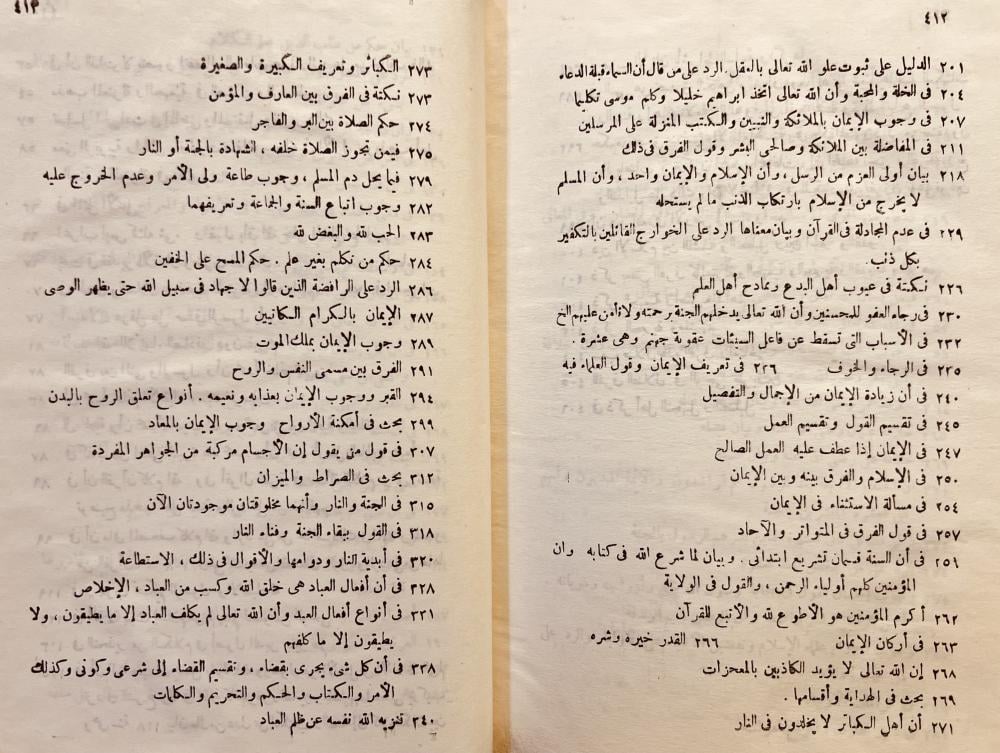 ٤١٢
٢٠١ الدليل على ثبوت علو الله تعالى بالعقل. الرد على من قال أن السماء قبلة الدعاء
٢٠٤ فى الخلة والمحبة وأن الله تعالى اتخذ ابراهيم خليلا وكلم موسى تكليما
٢٠٧ فى وجوب الإيمان بالملائكة والنبيين والكتب المنزلة على المرسلين
٢١١ فى المفاضلة بين الملائكة وصالحى البشر وقول الفرق فى ذلك
٢١٨ بيان أولى العزم من الرسل، وأن الإسلام والإيمان واحد، وأن المسلم
لا يخرج من الإسلام بارتكاب الذنب ما لم يستحله
٢٢٩ فى عدم المجادلة فى القرآن وبيان معناها الرد على الخوارج القائلين بالتكفير
بكل ذنب.
٢٢٦ نكتة فى عيوب أهل البدع وممادح أهل العلم
٢٣٠ فى رجاء العفو للمحسنين وأن الله تعالى يدخلهم الجنة برحمته ولا نأمن عليهم الخ
٢٣٢ فى الأسباب التى تسقط عن فاعل السيئات عقوبة جهنم وهى عشرة.
٢٣٥ فى الرجاء والخوف ٢٣٦ فى تعريف الإيمان وقول العلماء فيه
٢٤٠ فى أن زيادة الإيمان من الإجمال والتفصيل
٢٤٥ فى تقسيم القول وتقسيم العمل
٢٤٧ فى الإيمان إذا عطف عليه العمل الصالح
٢٥٠ فى الإسلام والفرق بينه وبين الإيمان
٢٥٤ فى مسألة الاستثناء فى الإيمان
٢٥٧ فى قول الفرق فى المتواتر والآحاد
٢٥٩ فى أن السنة قسمان تشريع ابتدائى. وبيان لما شرع الله فى كتابه وان
المؤمنين كلهم أولياء الرحمن، والقول فى الولاية
٢٦٢ أكرم المؤمنين هو الأطوع لله والأتبع للقرآن
٢٦٣ فى أركان الإيمان ٢٦٦ القدر خيره وشره
٢٦٨ إن الله تعالى لا يؤيد الكاذبين بالمعجزات
٢٦٩ بحث فى الهداية وأقسامها.
٢٧١ أن أهل الكبائر لا يخلدون فى النار
٤١٣
٢٧٣ الكبائر وتعريف الكبيرة والصغيرة
٢٧٣ نكتة فى الفرق بين العارف والمؤمن
٢٧٤ حكم الصلاة بين البر والفاجر
٢٧٥ فيمن تجوز الصلاة خلفه، الشهادة بالجنة أو النار
٢٧٩ فيما يحل دم المسلم، وجوب طاعة ولى الأمر وعدم الخروج عليه
٢٨٢ وجوب اتباع السنة والجماعة وتعريفهما
٢٨٣ الحب لله والبغض لله
٢٨٤ حكم من تكلم بغير علم. حكم المسح على الخفين
٢٨٦ الرد على الرافضة الذين قالوا لا جهاد فى سبيل الله حتى يظهر الوصى
٢٨٧ الإيمان بالكرام الكاتبين
٢٨٩ وجوب الإيمان بملك الموت
٢٩١ الفرق بين مسمى النفس والروح
٢٩٤ القبر ووجوب الإيمان بعذابه ونعيمه. أنواع تعلق الروح بالبدن
٢٩٩ بحث فى أمكنة الأرواح وجوب الإيمان بالمعاد
٣٠٧ فى قول من يقول إن الأجسام مركبة من الجواهر المفردة
٣١٢ بحث فى الصراط والميزان
٣١٥ فى الجنة والنار وأنهما مخلوقتان موجودتان الآن
٣١٨ فى القول ببقاء الجنة وفناء النار
٣٢٠ فى أبدية النار ودوامها والأقوال فى ذلك، الاستطاعة
٣٢٨ فى أن أفعال العباد هى خلق الله وكسب من العباد، الإخلاص
٣٣١ فى أنواع أفعال العبد وأن الله تعالى لم يكلف العباد إلا ما يطيقون، ولا
يطيقون إلا ما كلفهم
٣٣٨ فى أن كل شىء يجرى بقضاء، وتقسيم القضاء إلى شرعى وكونى وكذلك
الأمر والكتاب والحكم والتحريم والكلمات
٣٤٠ تنزيه الله نفسه عن ظلم العباد